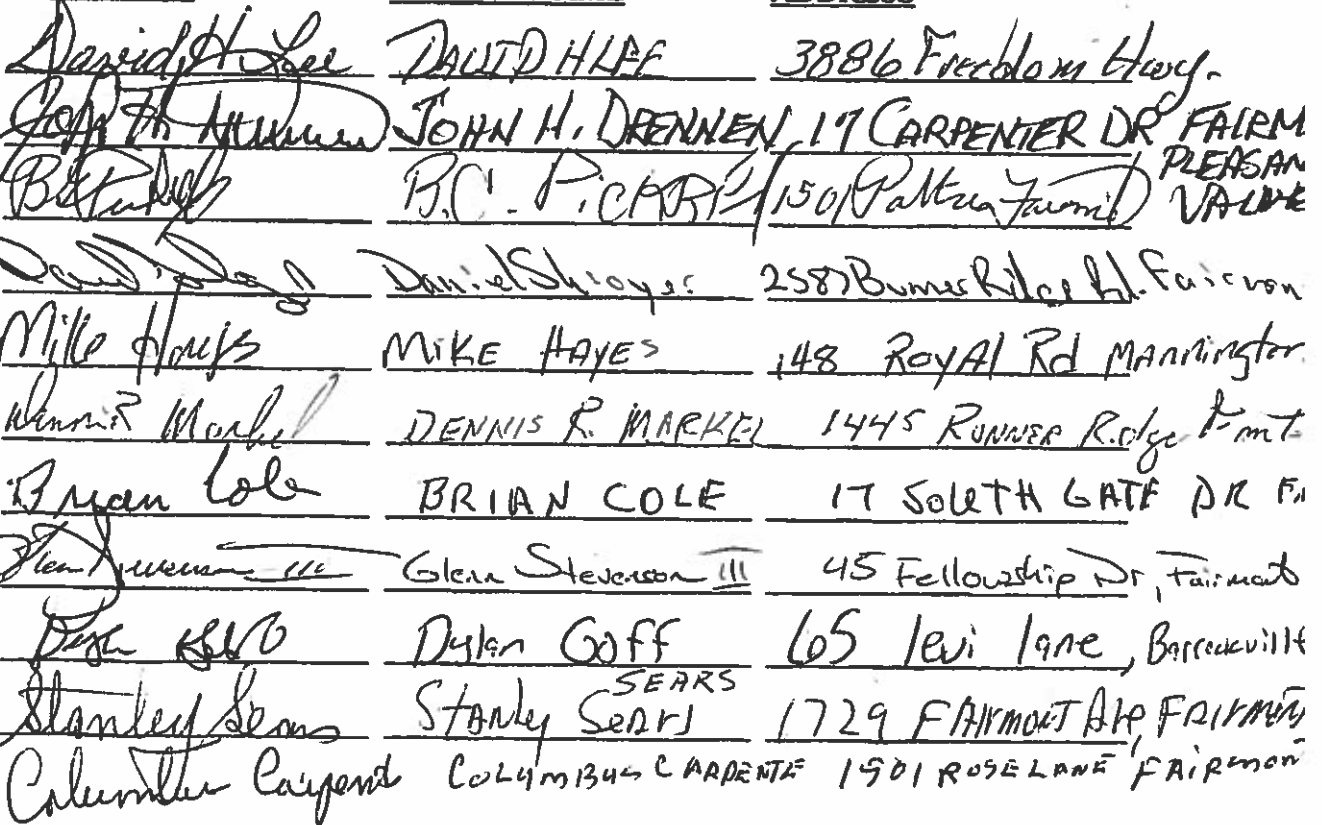 David H Lee DAVID H LEE 3886 Freedom Hwy.
John H. JOHN H. DRENNEN 17 CARPENTER DR FAIRM
B.C. PICKARD 1501 Fairmont PLEASAN
VALLEY
Daniel Shroyer 2587 Bunner Ridge Rd. Fairmon
Mike Hayes MIKE HAYES 148 ROYAl Rd MANNington
Dennis R Markel DENNIS R. MARKEL 1445 BUNNER Ridge Fmt
Bryan Cole BRIAN COLE 17 SOUTH GATE DR F
Glenn Stevenson III Glenn Stevenson III 45 Fellowship Dr, Fairmont
Dylan Goff Dylan Goff 65 levi lane, Barrackville
SEARS
Stanley Sears STANley Sears 1729 FAIrmont Ave, FAIrmon
Columbus Carpent COLUMBUS CARPENTE 1501 ROSE LANE FAIRmon